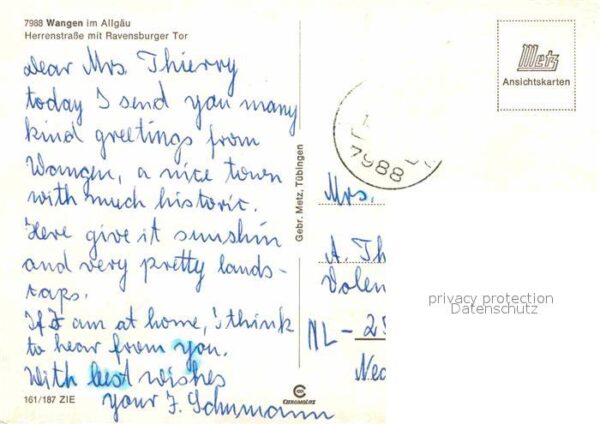 7988 Wangen im Allgäu
Herrenstraße mit Ravensburger Tor
Dear Mrs. Thierry
today I send you many
kind greetings from
Wangen, a nice town
with much historic.
Here give it sunshin
and very pretty lands-
caps.
If I am at home, i think
to hear from you.
With best wishes
your J. Schumann
161/187 ZIE
Gebr. Metz, Tübingen
CHROMOLUX
Metz
Ansichtskarten
7988
Mrs.
A. Th
Volen
NL-
Ned
privacy protection
Datenschutz